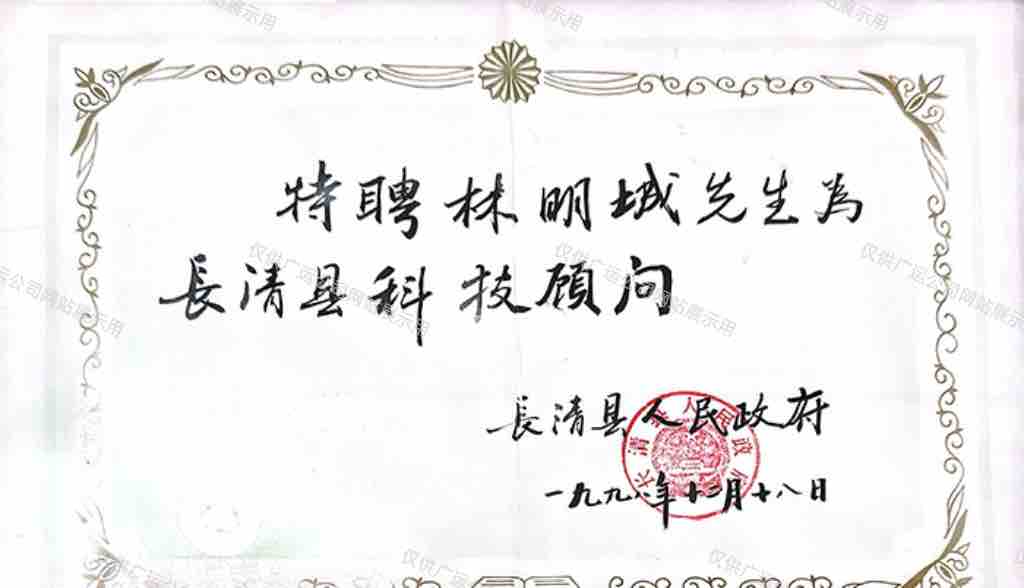 特聘林明城先生為
長清县科技顾问
長清县人民政府
一九九八年十二月十八日
仅供广运公司网站展示用